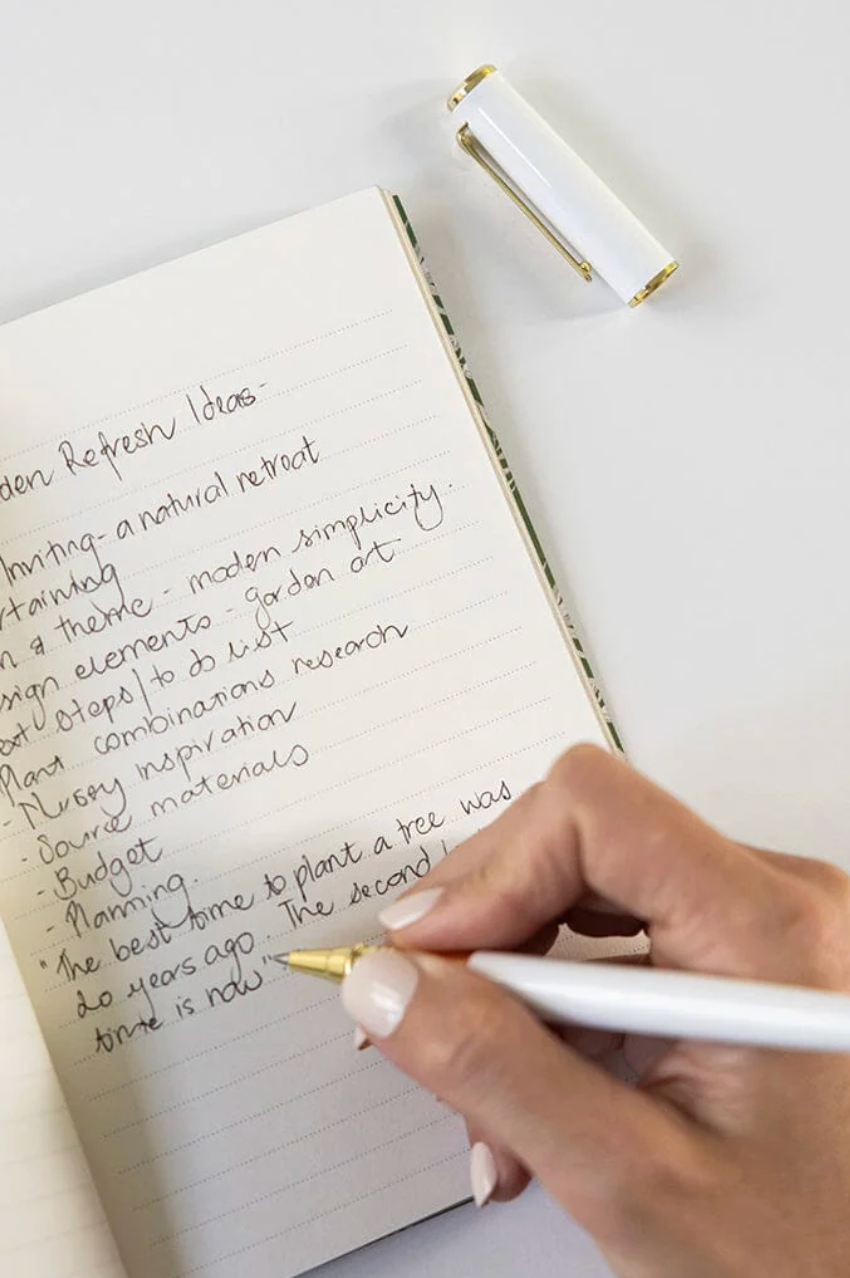 den Refresh Ideas-
Inviting - a natural retreat
rtaining
n & theme - modern simplicity.
sign elements - garden art
ext steps/to do list
Plant combinations research
- Nursery inspiration
- Source materials
- Budget
- Planning.
"The best time to plant a tree was
20 years ago. The second
time is now"